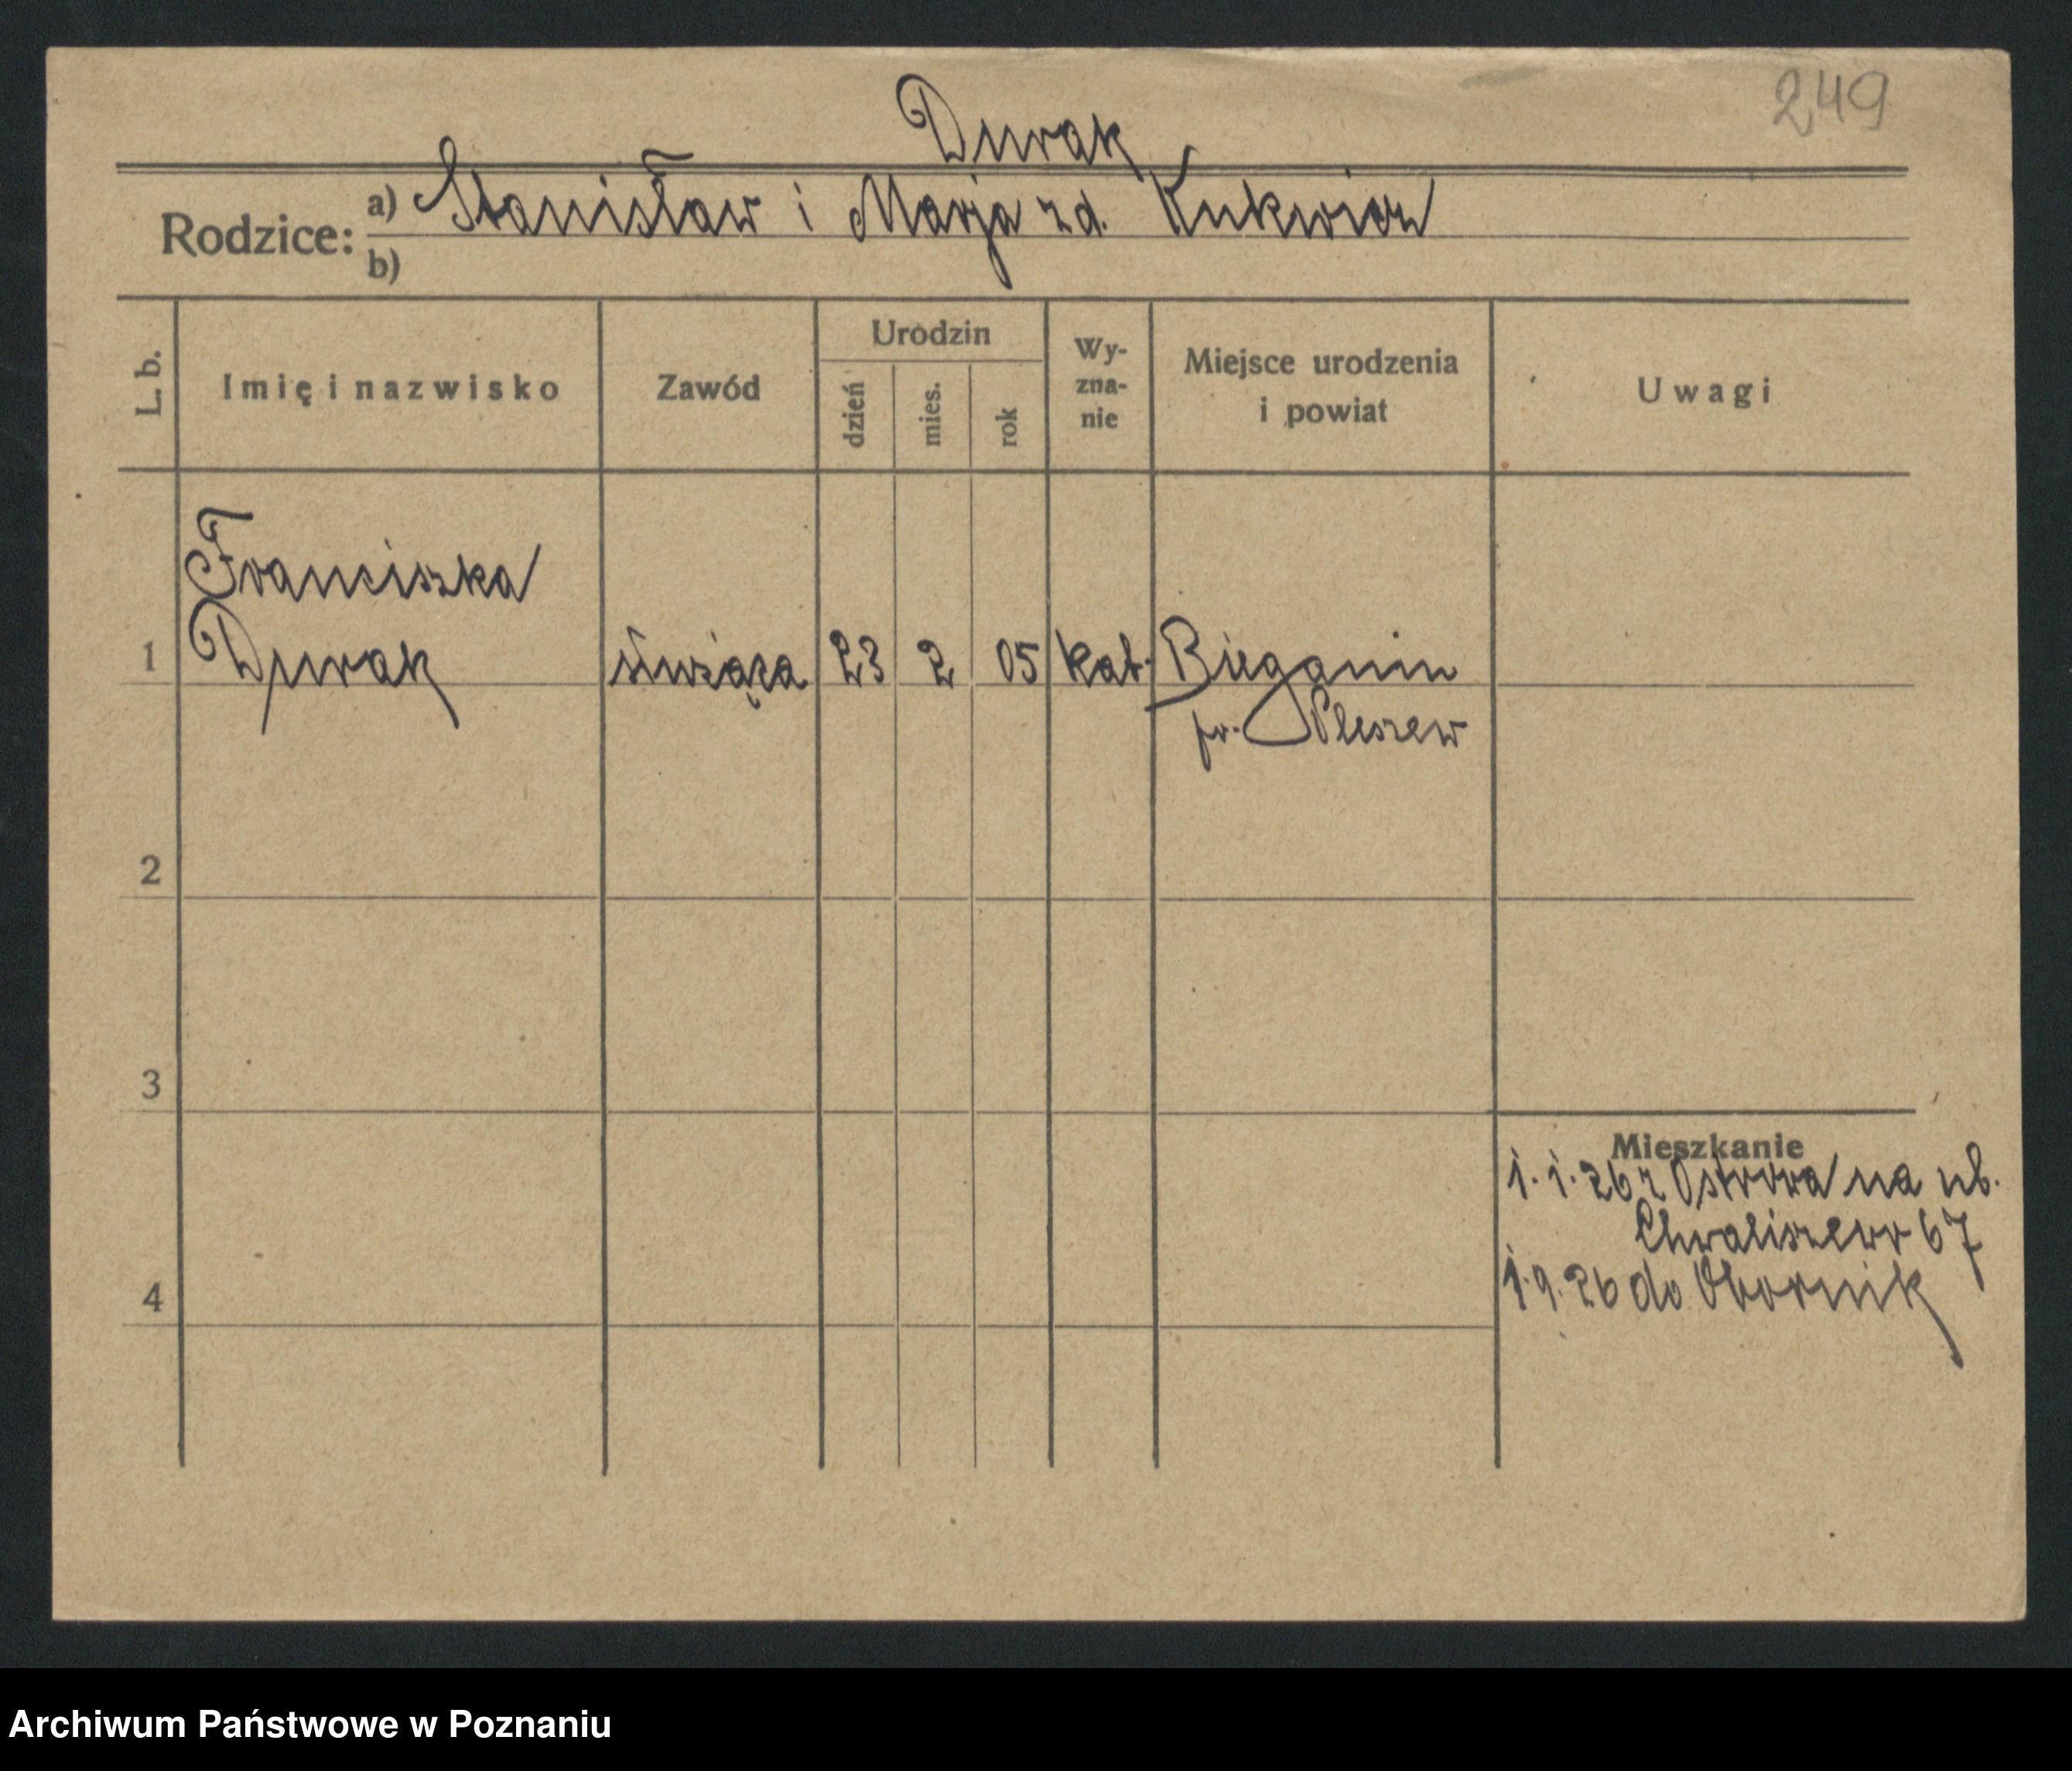 249
Durak
Rodzice: a) Stanisław i Marja zd. Kukwicz
b)
L. b.
Imię i nazwisko
Zawód
Urodzin
dzień
mies.
rok
Wy-
zna-
nie
Miejsce urodzenia
i powiat
Uwagi
Franciszka
1 Durak służąca 23 2 05 kat. Bieganin
pw. Pleszew
2
3
Mieszkanie
1.1.26 z Ostrowa na ub.
Chwaliszewo 67
4
1.9.26 do Obornik
Archiwum Państwowe w Poznaniu